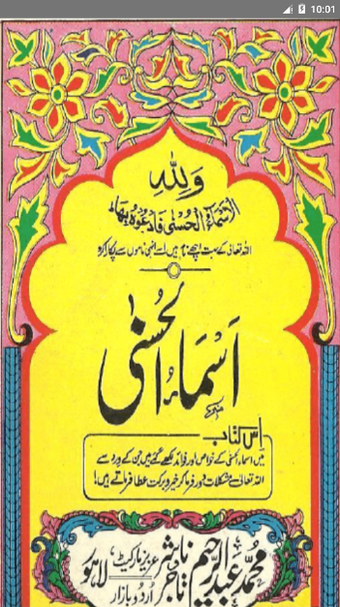 10:01
وَلِلّٰهِ
الْاَسْمَآءُ الْحُسْنٰی فَادْعُوْهُ بِهَا
اللہ تعالیٰ کے بہت اچھے نام ہیں اسے انہی ناموں سے پکارا کرو
اَسْمَاءُ الْحُسْنٰی
اِس کتاب
میں اسماء الحسنٰی کے خواص اور فوائد لکھے گئے ہیں جن کے ورد سے
اللہ تعالیٰ مشکلات دور فرما کر خیر و برکت عطا فرماتے ہیں!
محمد عبدالرحیم ناشر تاجر عزیز مارکیٹ، اُردو بازار لاہور